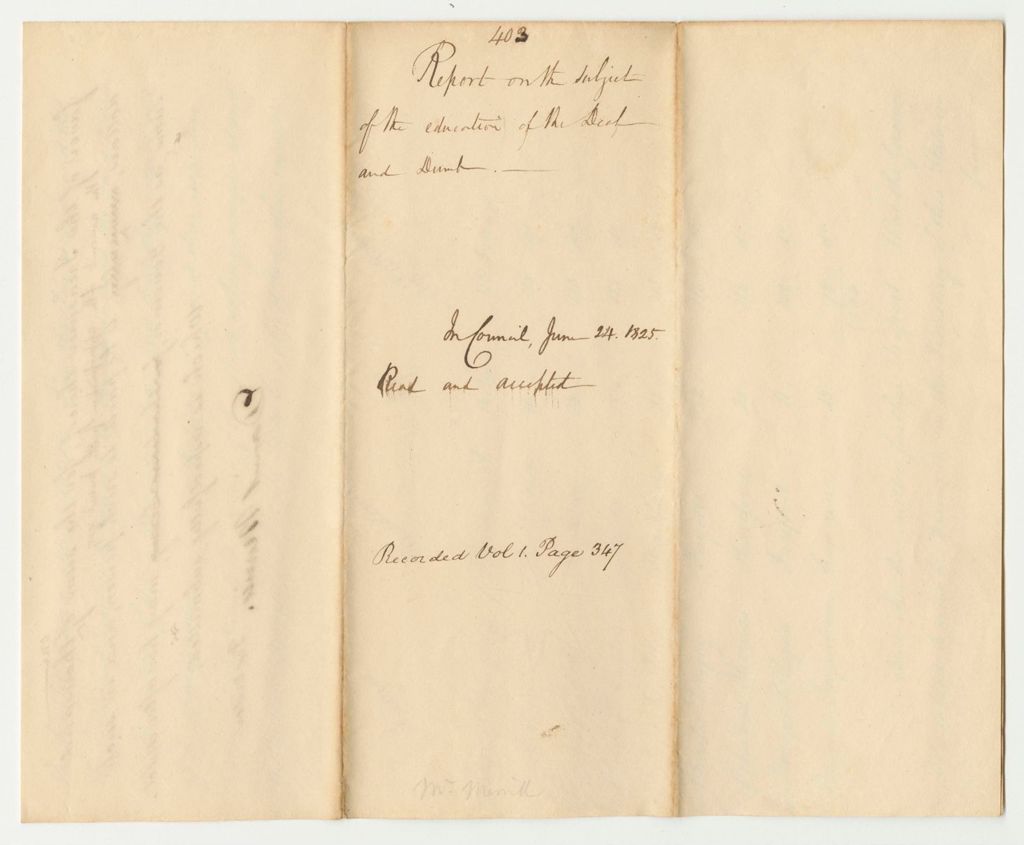 403
Report on the subject
of the education of the Deaf
and Dumb. —
In Council, June 24. 1825.
Read and accepted
Recorded Vol 1. Page 347
Mr. Merrill